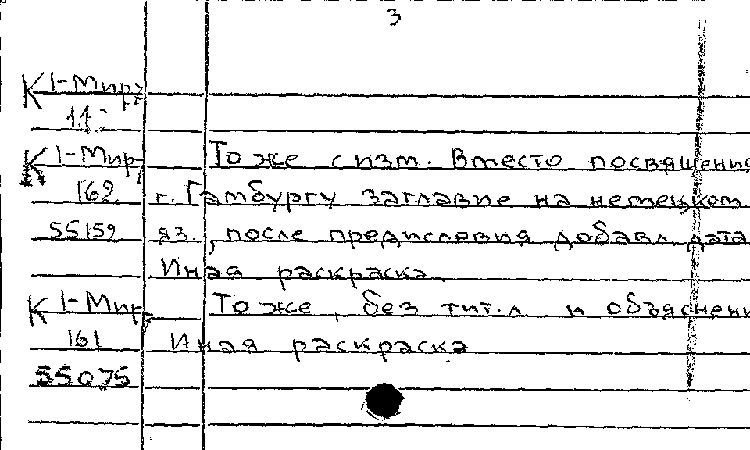 3
К 1-Мир
11
К 1-Мир То же с изм. Вместо посвящения
162 г. Гамбургу заглавие на немецком
55159 яз., после предисловия добавл. дата
Иная раскраска.
К 1-Мир То же, без тит. л и объяснени
161 Иная раскраска
55075